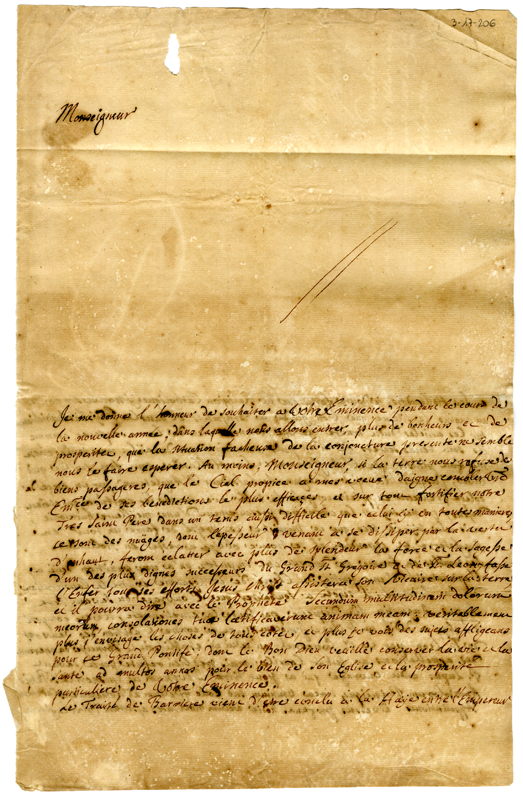 3-17-206
Monseigneur
Je me donne l'honneur de souhaiter a Votre Eminence pendant le cours de
la nouvelle année, dans laquelle nous allons entrer, plus de bonheurs et de
prosperité, que la situation facheuse de la conjoncture presente ne semble
nous le faire esperer. Au moins, Monseigneur, si la terre nous refuse de
biens passageres, que le Ciel propice a nos daigne combler V.re
Em.ce de ses benedictions le plus efficaces, et sur tout fortifier notre
Tres Saint Pere dans un tems aussi difficile que celui ci en toutes manieres
ce sont des nuages, dont l'epesseur venant a se dissiper par la vertu
d'enhaut, feront eclatter avec plus de splendeur la force et la sagesse
d'un des plus dignes successeurs du Grand St Gregoire et de St Leon, fasse
l'Enfer tous ses efforts Jesus Christ assistera son Vicaire sur la terre
et il pourra dire avec le Prophete Secundum multitudinem dolorum
meorum consolationes tuae laetificaverunt animam meam; veritablement
plus j'envisage les choses de tous côté, et plus je vois des sujets affligeans
pour ce Grand Pontife, dont le Bon Dieu veuille conserver la vie et la
santé ad multos annos pour le bien de son Eglise et la prosperité
particuliere de Votre Eminence.
Le Traité de Barriere vient d'etre conclu à la Haÿe entre l'Empereur